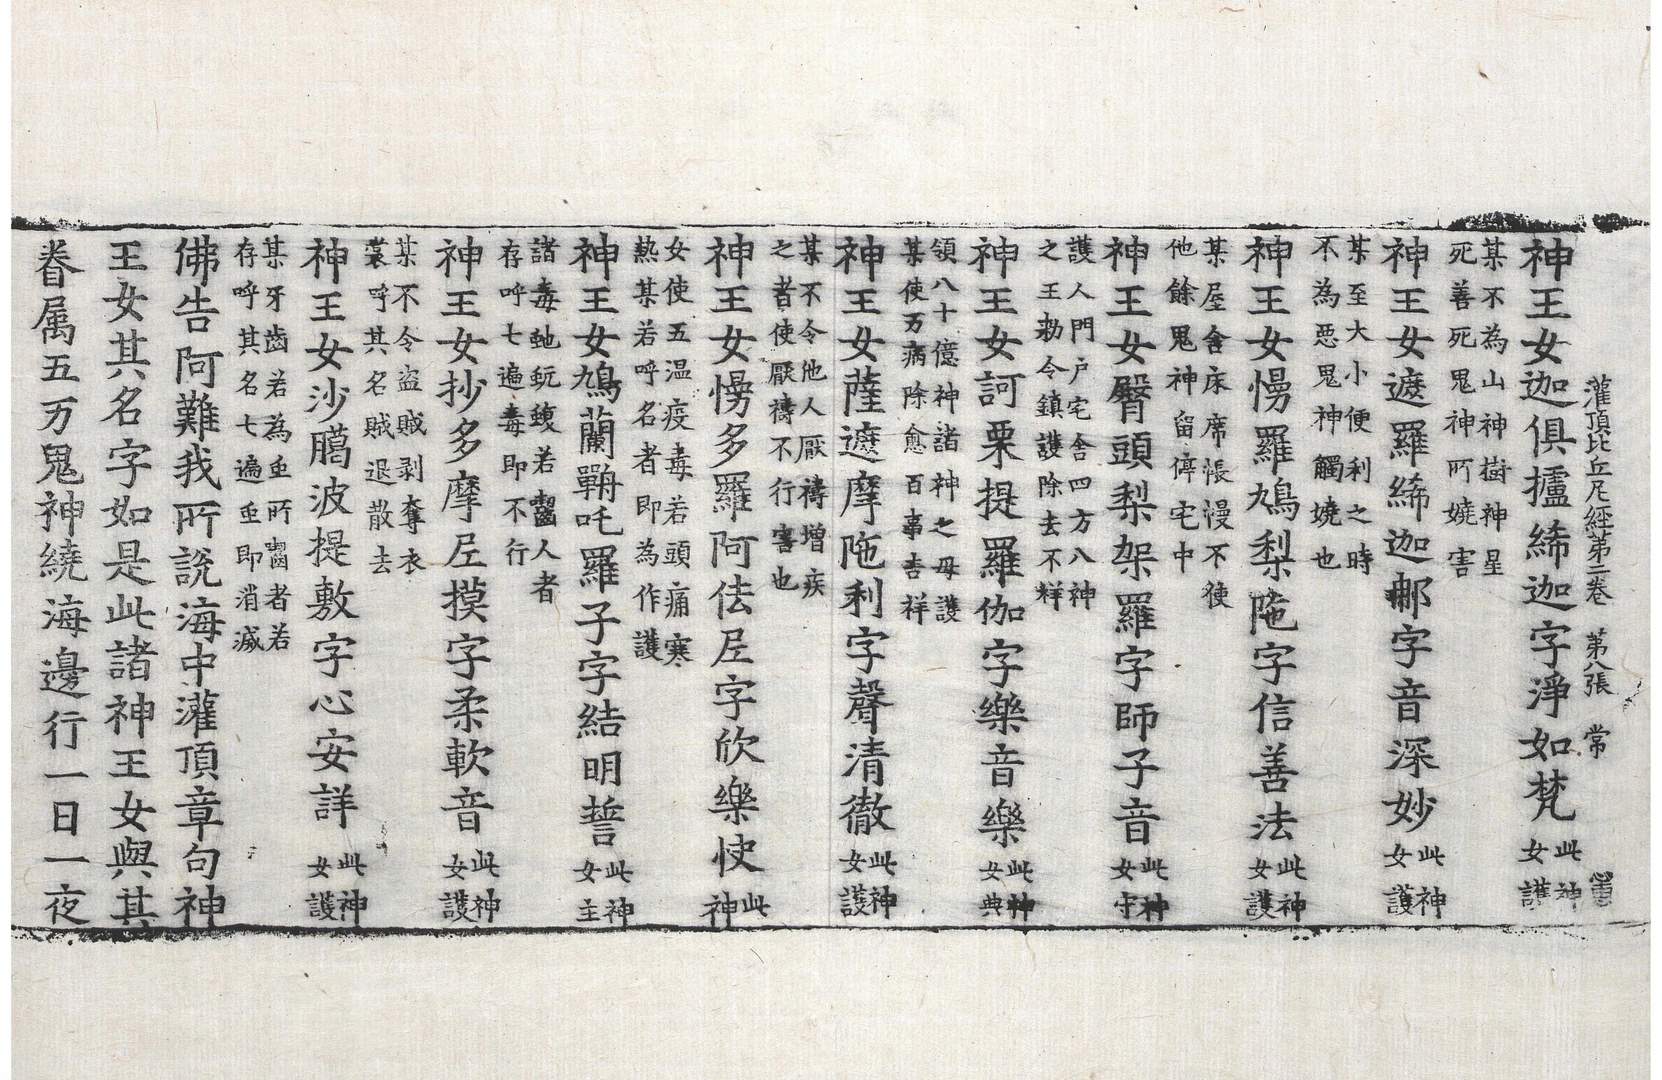 灌頂比丘尼經第二卷　第八張　常
神王女迦俱攎絺迦字淨如梵此神女護
某不為山神樹神星死善死鬼神所嬈害
神王女遮羅絺迦字音深妙此神女護
某至大小便利之時不為惡鬼神觸嬈也
神王女慢羅鳩梨陁字信善法此神女護
某屋舍床席帳幔不使他餘鬼神留停宅中
神王女臀頭梨架羅字師子音此神女守
護人門戶宅舍四方八神之王勑令鎮護除去不祥
神王女訶栗提羅伽字樂音樂此神女典
領八十億神諸神之母護某使万病除愈百事吉祥
神王女薩遮摩陁利字聲清徹此神女護
某不令他人厭禱增疾之者使厭禱不行害也
神王女慢多羅阿佉𡰱字欣樂快此神
女使五温疫毒若頭痛寒熱某若呼名者即為作護
神王女鳩蘭鞞吒羅子字結明誓此神女主
諸毒虵蚖蝮若齧人者存呼七遍毒即不行
神王女抄多摩𡰱摸字柔軟音此神女護
某不令盜賊剥奪衣裳呼其名賊退散去
神王女沙臈波提敷字心安詳此神女護
某牙齒若為虫所齧者若存呼其名七遍虫即消滅
佛告阿難我所說海中灌頂章句神
王女其名字如是此諸神王女與其
眷属五万鬼神繞海邊行一日一夜